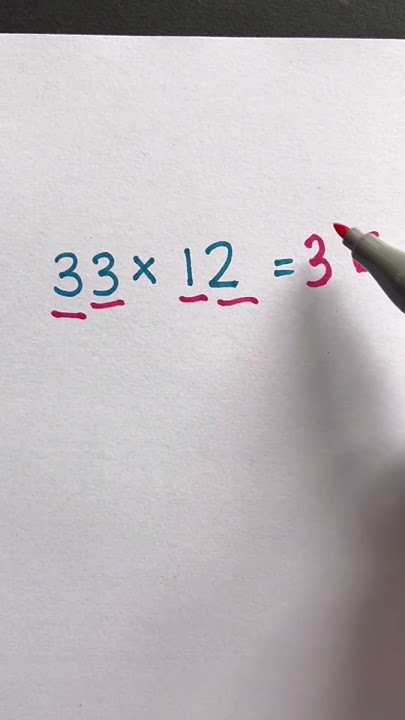 33 × 12 = 3